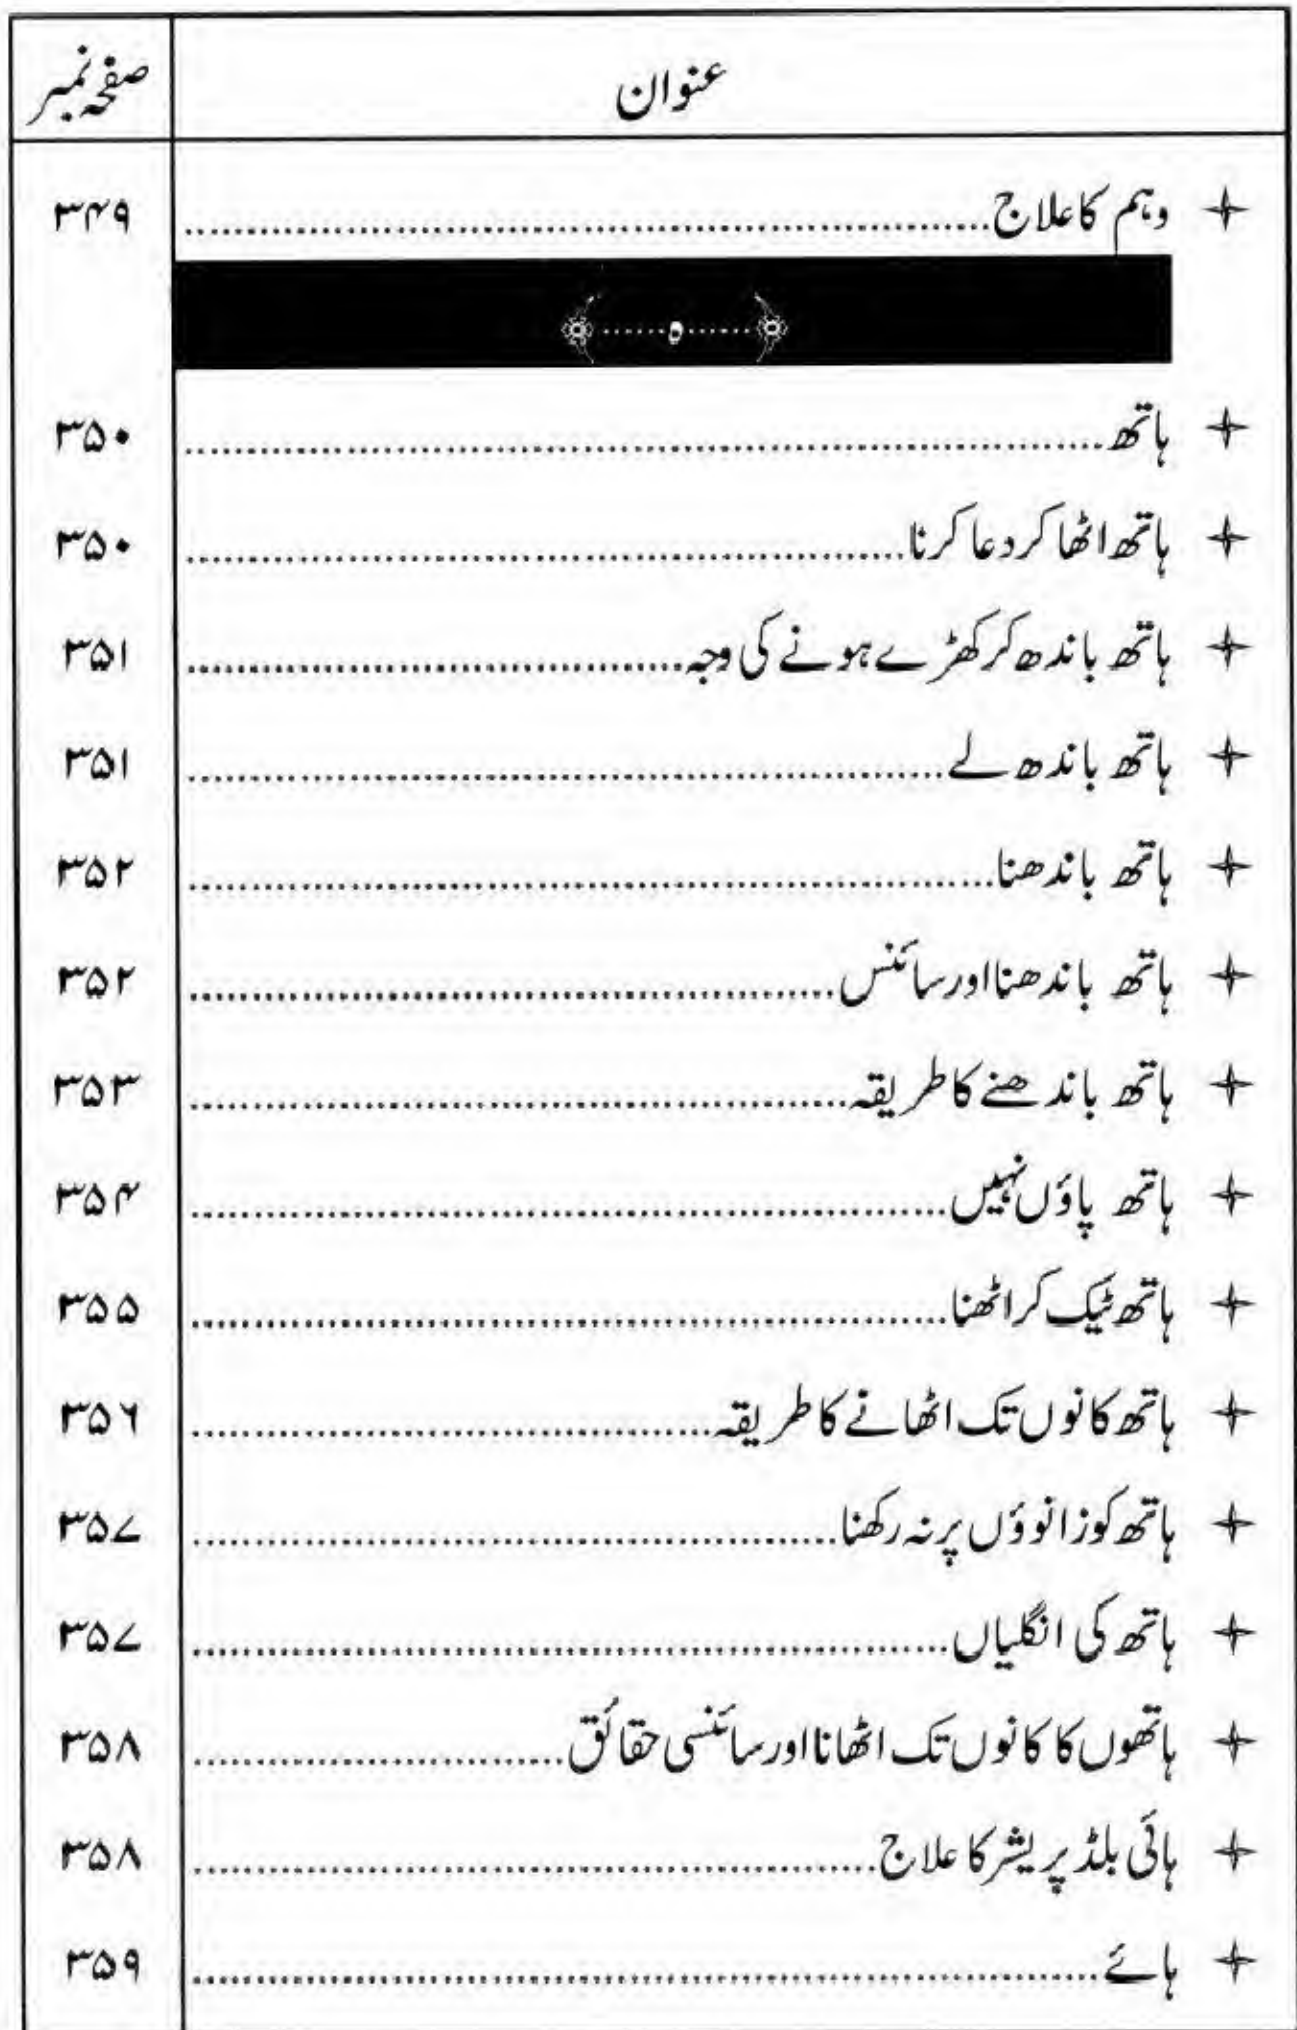 عنوان صفحہ نمبر
وہم کا علاج ........ ۳۴۹
ہ
ہاتھ ........ ۳۵۰
ہاتھ اٹھا کر دعا کرنا ........ ۳۵۰
ہاتھ باندھ کر کھڑے ہونے کی وجہ ........ ۳۵۱
ہاتھ باندھ لے ........ ۳۵۱
ہاتھ باندھنا ........ ۳۵۲
ہاتھ باندھنا اور سائنس ........ ۳۵۲
ہاتھ باندھنے کا طریقہ ........ ۳۵۳
ہاتھ پاؤں نہیں ........ ۳۵۴
ہاتھ ٹیک کر اٹھنا ........ ۳۵۵
ہاتھ کانوں تک اٹھانے کا طریقہ ........ ۳۵۶
ہاتھ کو زانوؤں پر نہ رکھنا ........ ۳۵۷
ہاتھ کی انگلیاں ........ ۳۵۷
ہاتھوں کا کانوں تک اٹھانا اور سائنسی حقائق ........ ۳۵۸
ہائی بلڈ پریشر کا علاج ........ ۳۵۸
ہائے ........ ۳۵۹